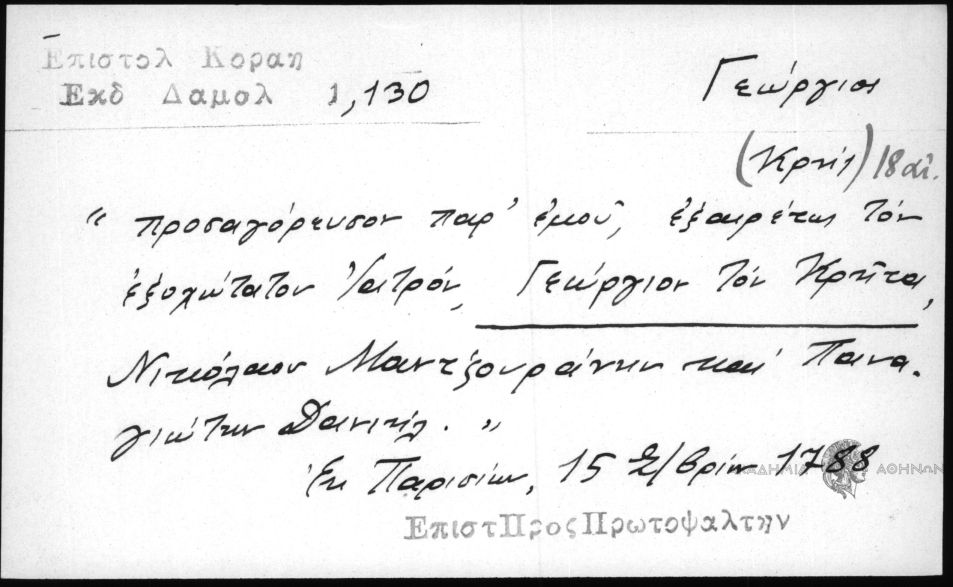 Επιστολ Κοραη
Εκδ Δαμαλ 1,130
Γεώργιος
(Κρής) 18 αἰ.
“ προσαγόρευσον παρ' ἐμοῦ, ἐξαιρέτως τόν
ἐξοχώτατον Ἰατρόν, Γεώργιον τόν Κρῆτα,
Νικόλαον Μαντζουράνην καί Πανα-
γιώτην Δανιήλ. ”
Ἐκ Παρισίων, 15 /βρίου 1788
ΑΚΑΔΗΜΙΑ ΑΘΗΝΩΝ
ΕπιστΠροςΠρωτοψαλτην